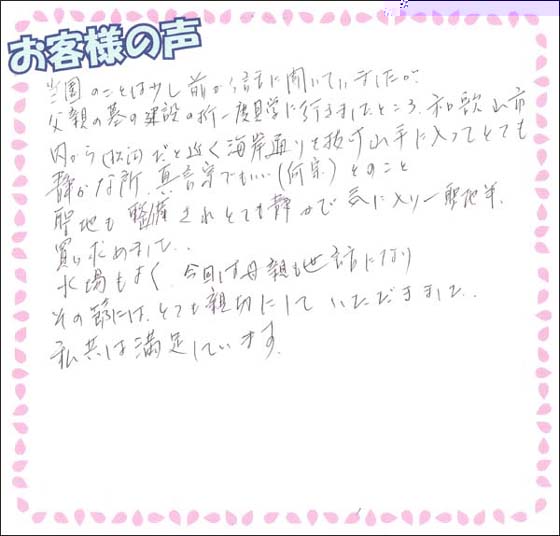 お客様の声
当園のことは少し前から話に聞いていましたが
父親の墓の建設の折一度見学に行きましたところ、和歌山市
内から だと近く海岸通りを抜け山手に入ってとても
静かな所、真言宗でもいい(何宗)とのこと
聖地も整備されとても静かで気に入り一聖地半、
買い求めました。
水場もよく、今回は母親も世話になり
その節には、とても親切にして いただきました。
私共は満足しています。